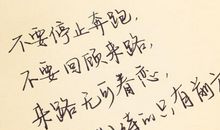 不要停止奔跑,
不要回顾来路,
来路无可眷恋,
只有前方